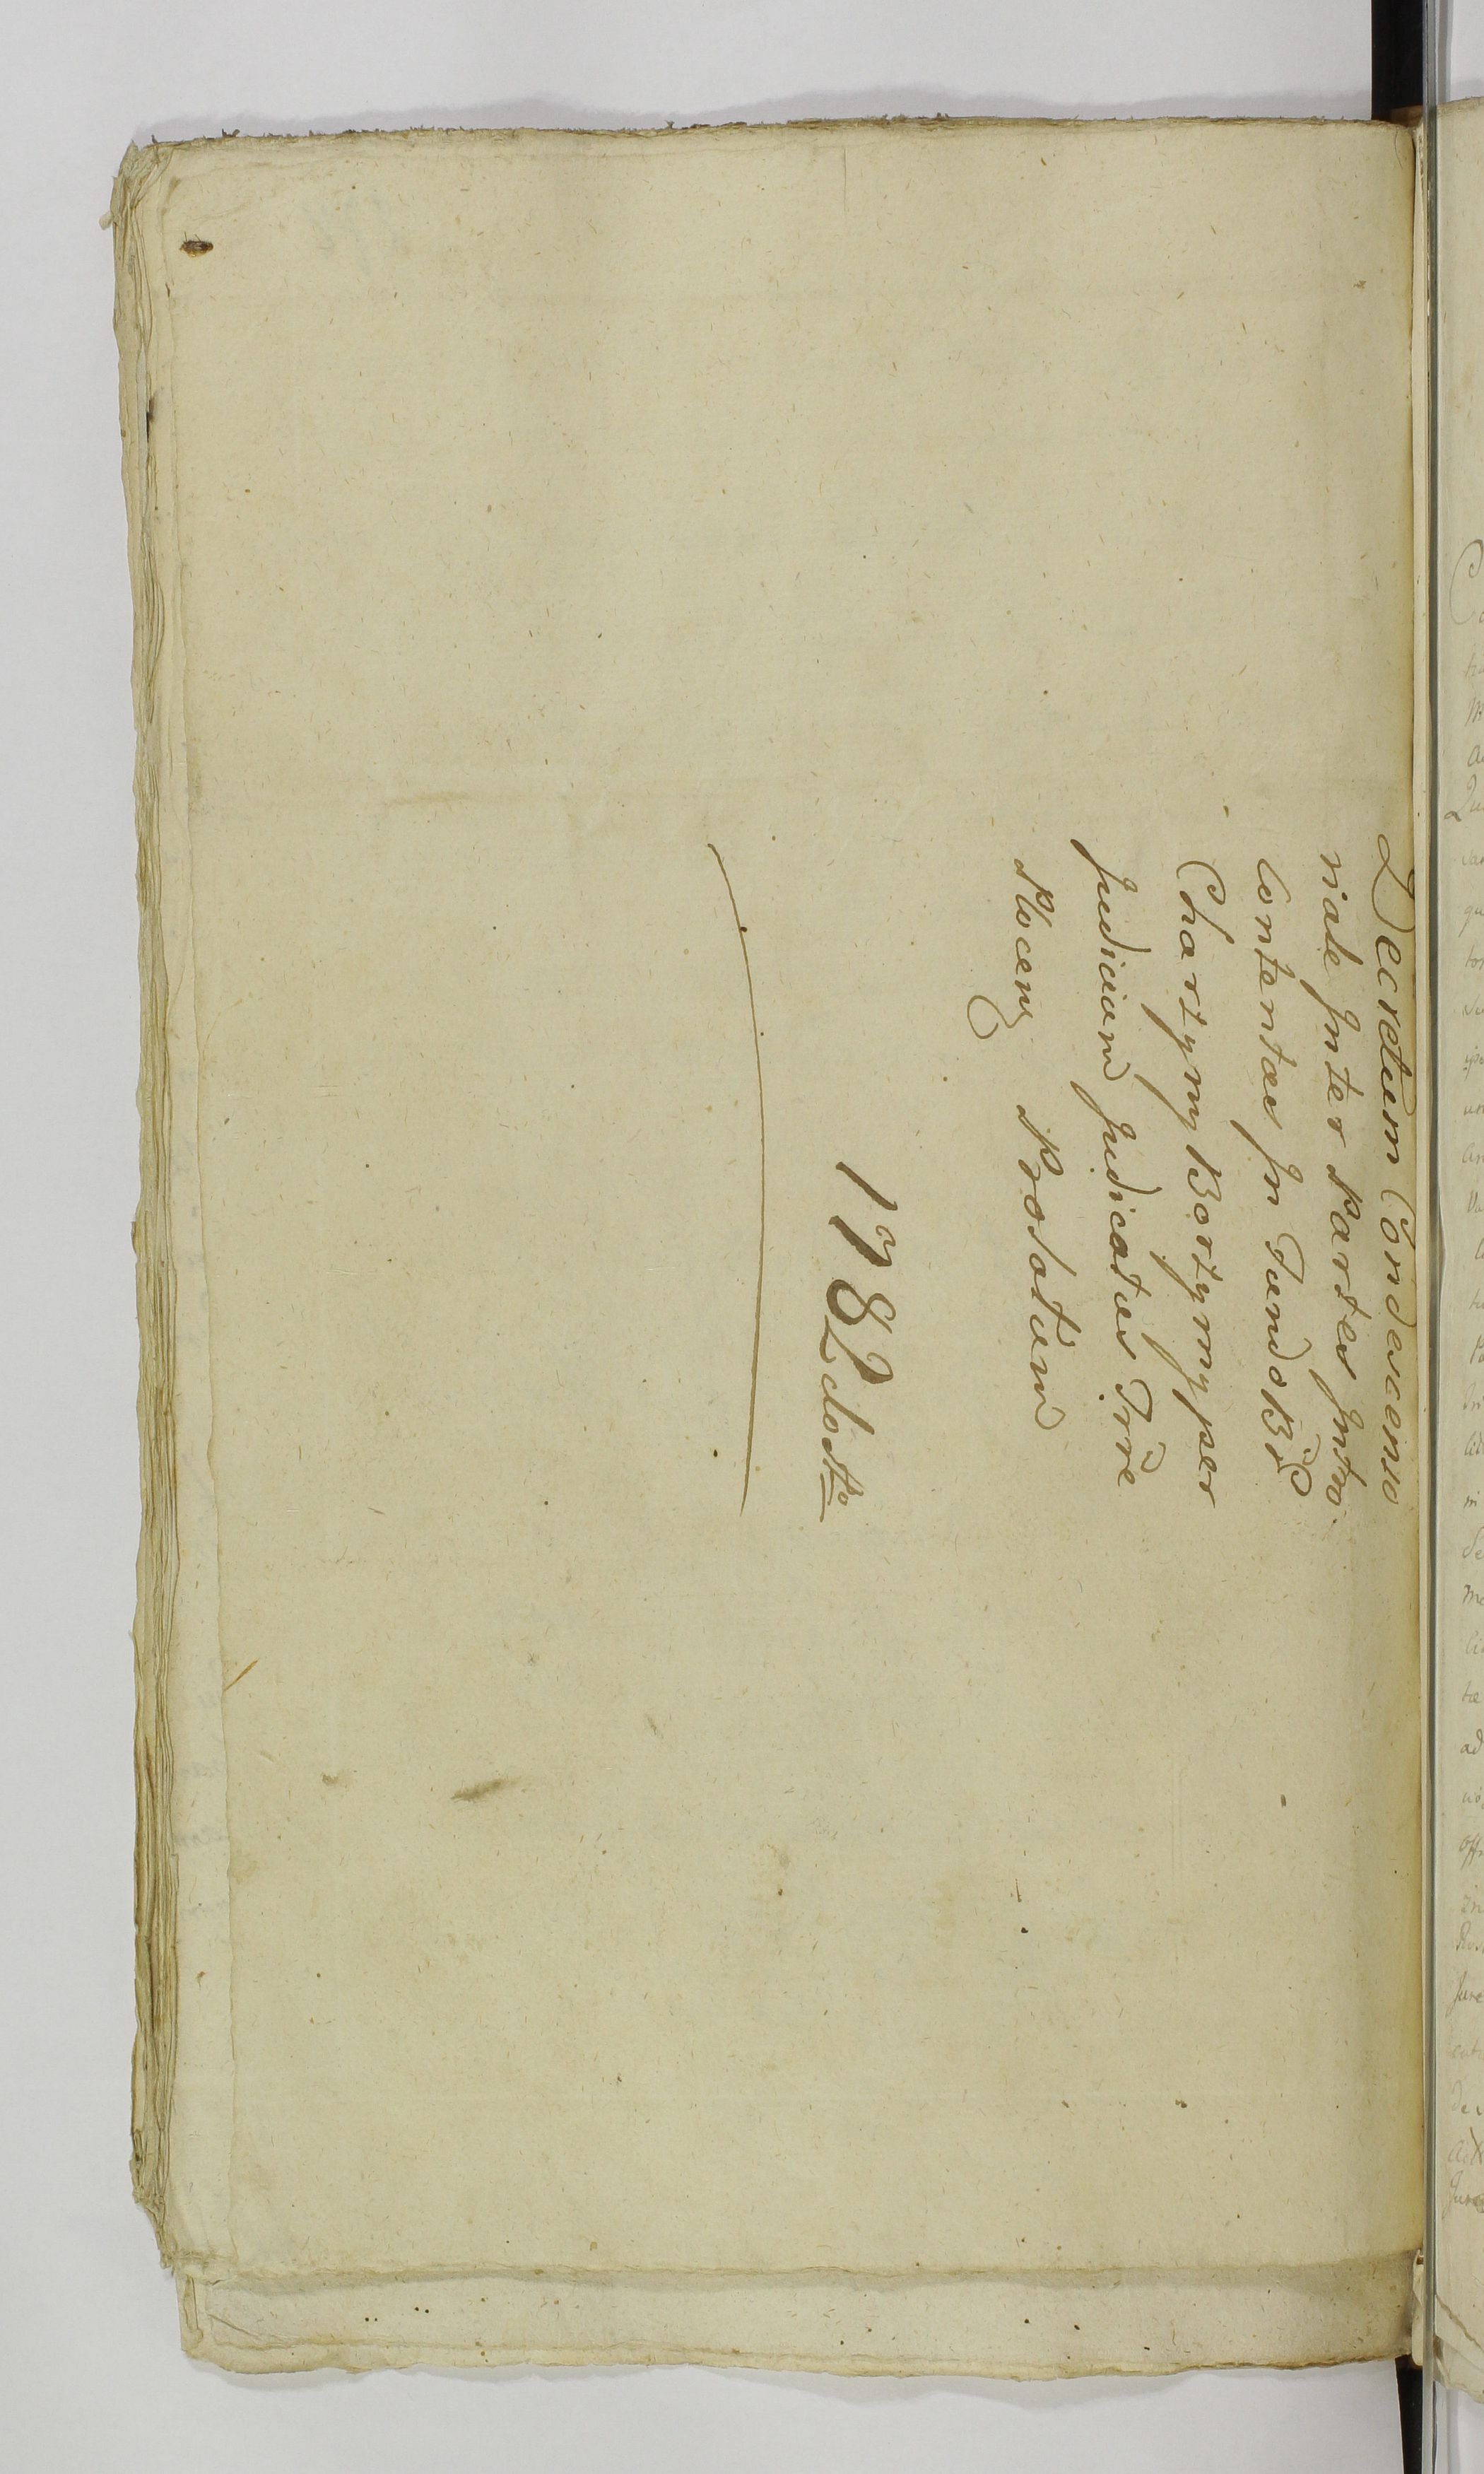 Decretum Condescenso
riale Inter Partes Intro
contentas In Fundo Bň
Chartymy Bortymy per
Judicium Judicatus Trře
Plocen Prolatum
1782do